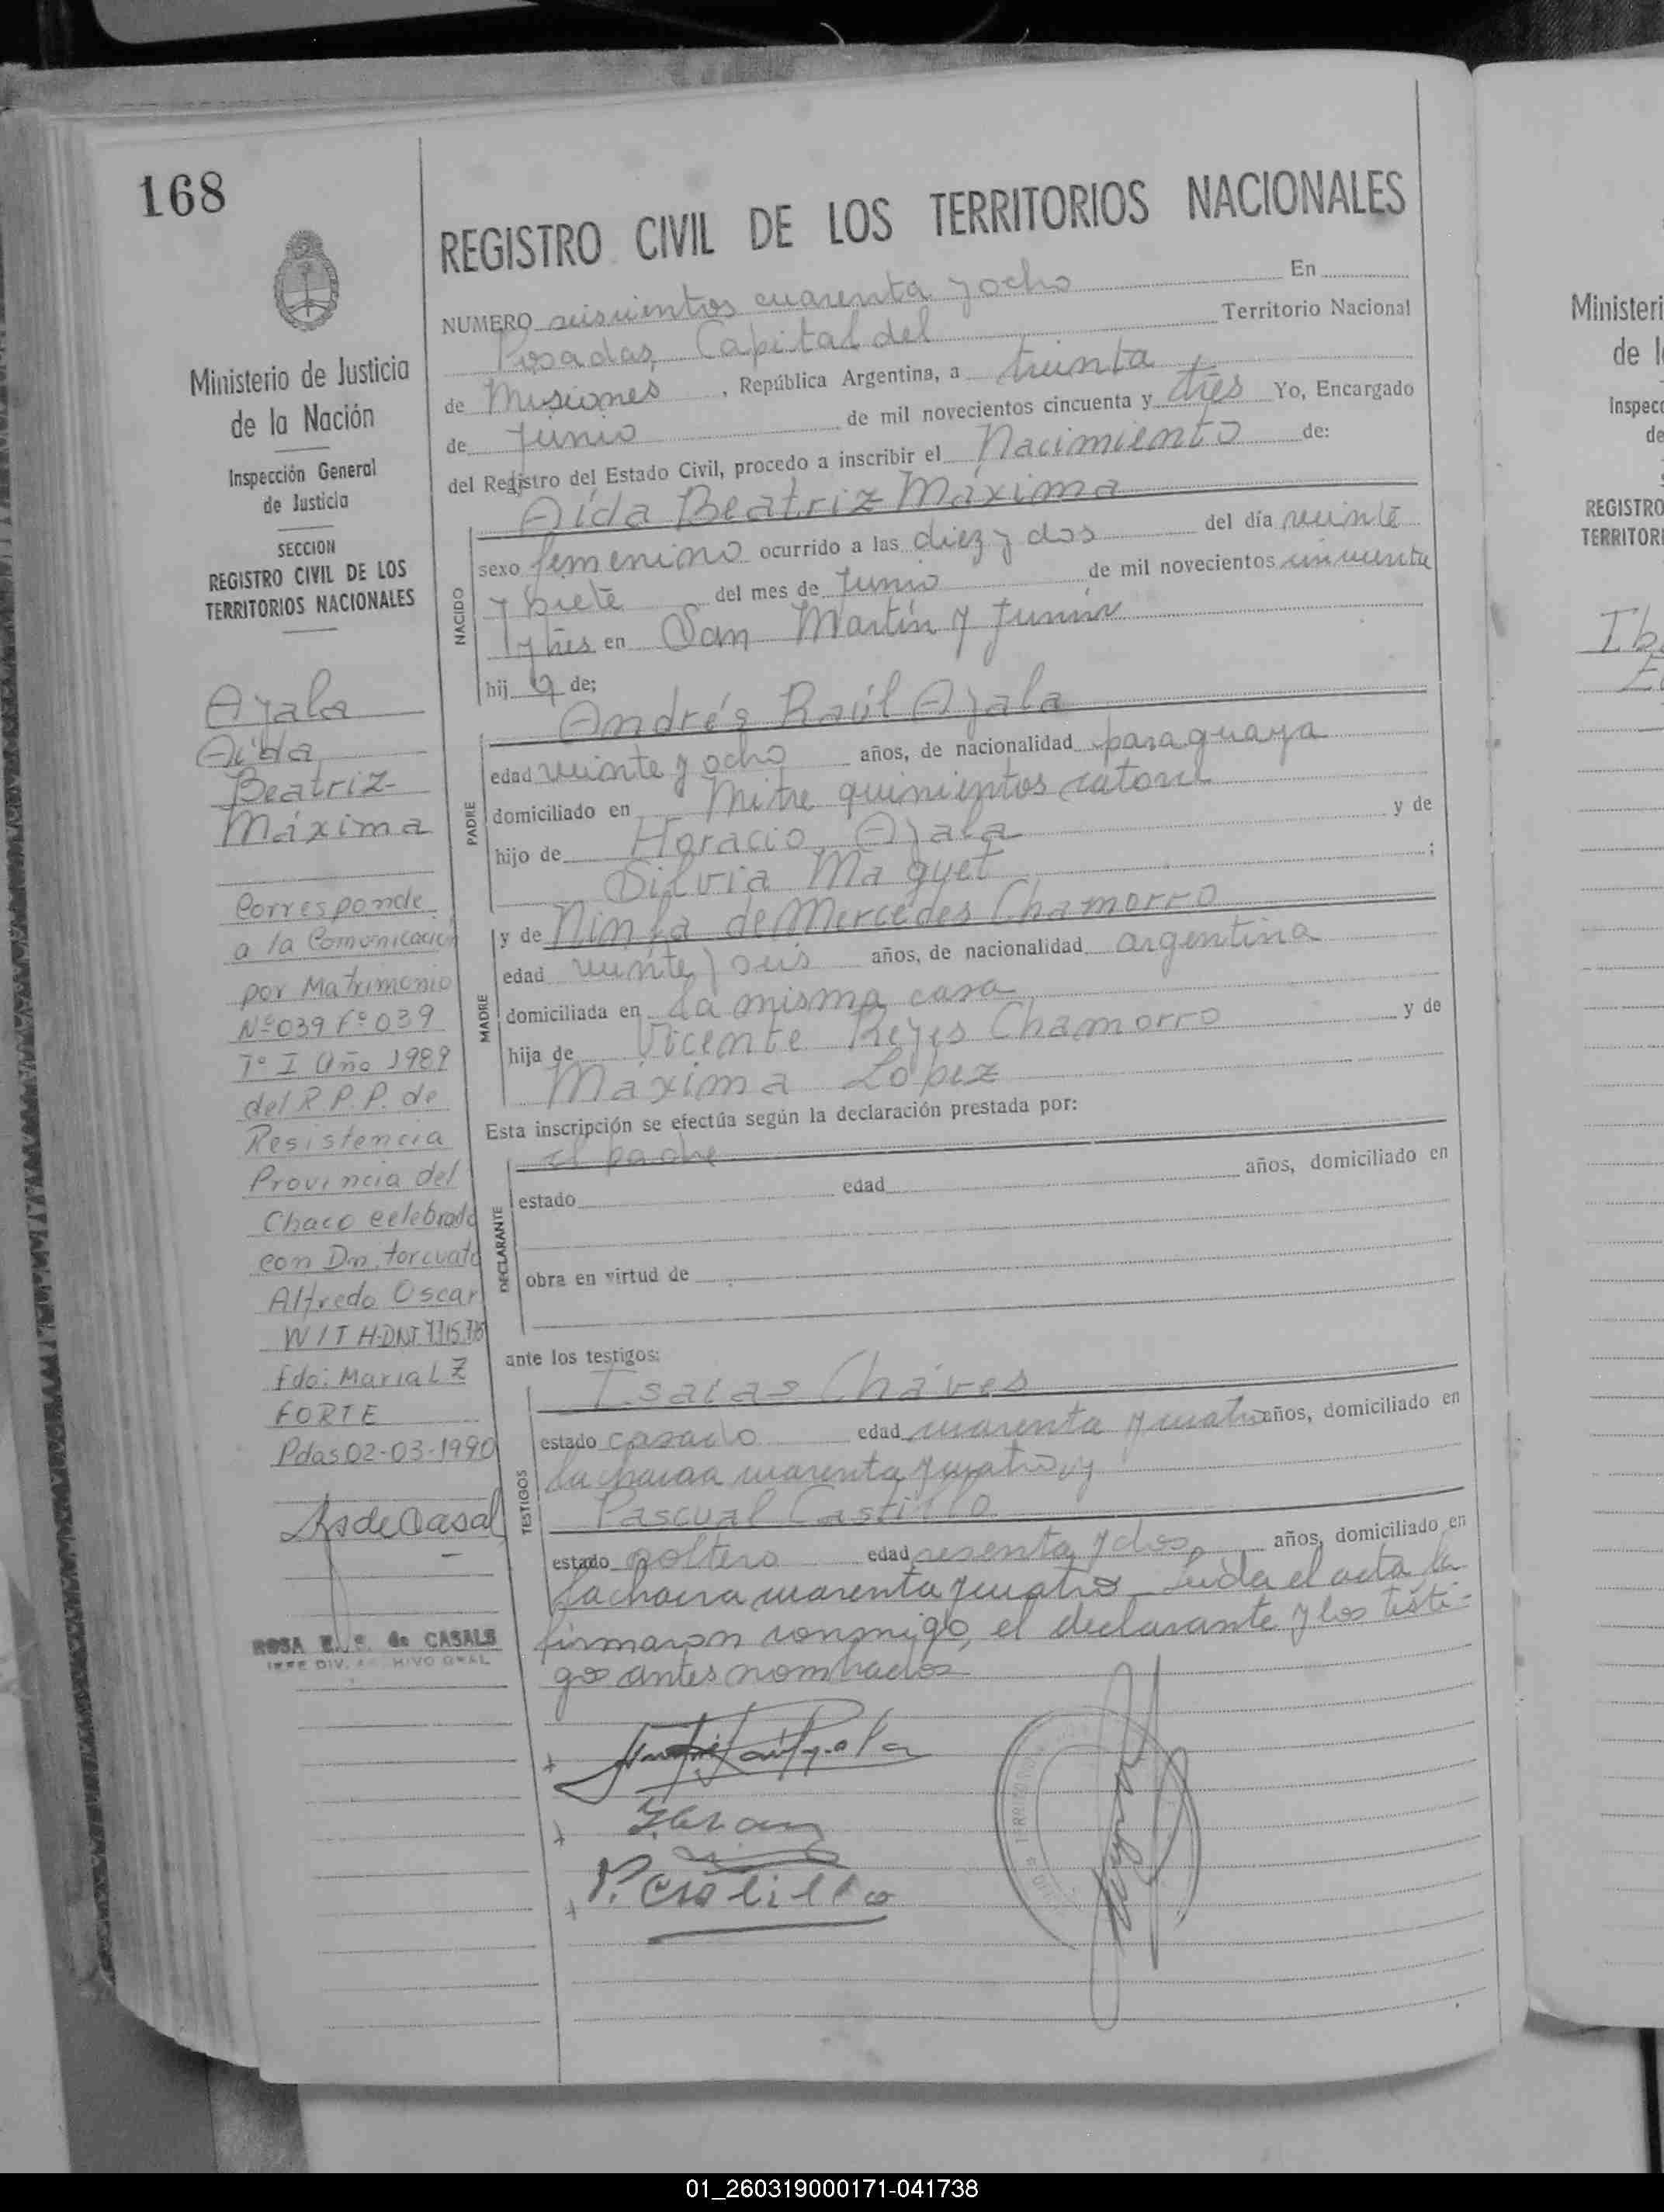 168
Ministerio de Justicia
de la Nación
Inspección General
de Justicia
SECCION
REGISTRO CIVIL DE LOS
TERRITORIOS NACIONALES
Ayala
Aída
Beatriz
Máxima
Corresponde
a la Comunicación
por Matrimonio
Nº 039 Fº 039
Tº I Año 1989
del R.P.P. de
Resistencia
Provincia del
Chaco celebrado
con Dn. Torcuato
Alfredo Oscar
WITH-DNI
fdo: Maria L Z
FORTE
Pdas 02-03-1990
ROSA E. de CASALS
REGISTRO CIVIL DE LOS TERRITORIOS NACIONALES
NUMERO seiscientos cuarenta y ocho En
Posadas, Capital del Territorio Nacional
de Misiones, República Argentina, a treinta
de Junio de mil novecientos cincuenta y tres Yo, Encargado
del Registro del Estado Civil, procedo a inscribir el Nacimiento de:
Aída Beatriz Máxima
NACIDO
sexo femenino ocurrido a las diez y dos del día veinte
y siete del mes de Junio de mil novecientos cincuenta
y tres en San Martín y Junín
hij a de;
Andrés Raúl Ayala
PADRE
edad veinte y ocho años, de nacionalidad paraguaya
domiciliado en Mitre quinientos catorce
hijo de Horacio Ayala y de
Silvia Maquet ;
y de Ninfa de Mercedes Chamorro
MADRE
edad veinte y seis años, de nacionalidad argentina
domiciliada en la misma casa
hija de Vicente Reyes Chamorro y de
Máxima López
Esta inscripción se efectúa según la declaración prestada por:
el padre
DECLARANTE
estado edad años, domiciliado en
obra en virtud de
ante los testigos:
Isaias Cháves
TESTIGOS
estado casado edad cuarenta y cuatro años, domiciliado en
la chacra cuarenta y cuatro y
Pascual Castillo
estado soltero edad sesenta y dos años, domiciliado en
la chacra cuarenta y cuatro Leída el acta la
firmaron conmigo, el declarante y los testi-
gos antes nombrados
P. Castillo
Ministeri
de l
Inspecc
de
REGISTRO
TERRITORI
01_260319000171-041738